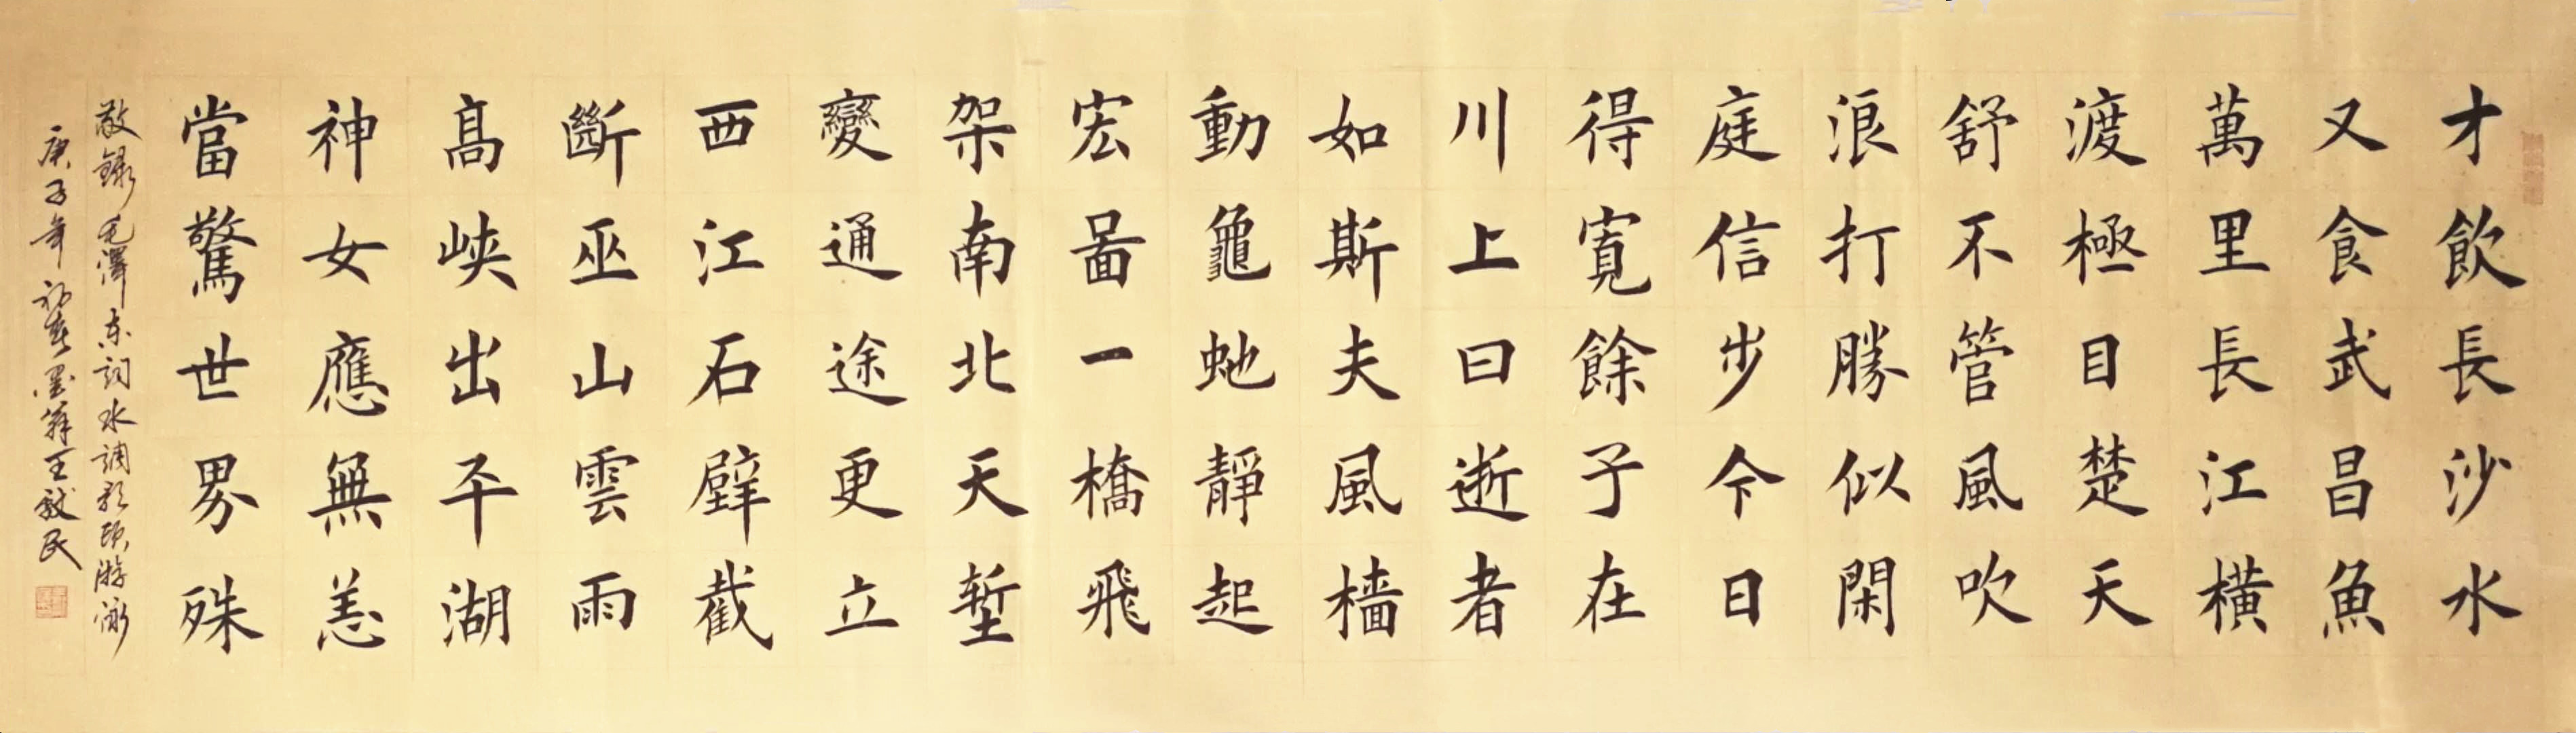 才飲長沙水
又食武昌魚
萬里長江橫
渡極目楚天
舒不管風吹
浪打勝似閑
庭信步今日
得寬餘子在
川上曰逝者
如斯夫風檣
動龜虵靜起
宏啚一橋飛
架南北天塹
變通途更立
西江石壁截
斷巫山雲雨
高峽出平湖
神女應無恙
當驚世界殊
敬錄毛澤東詞水調歌頭游泳
庚子年初春墨翁王啟民